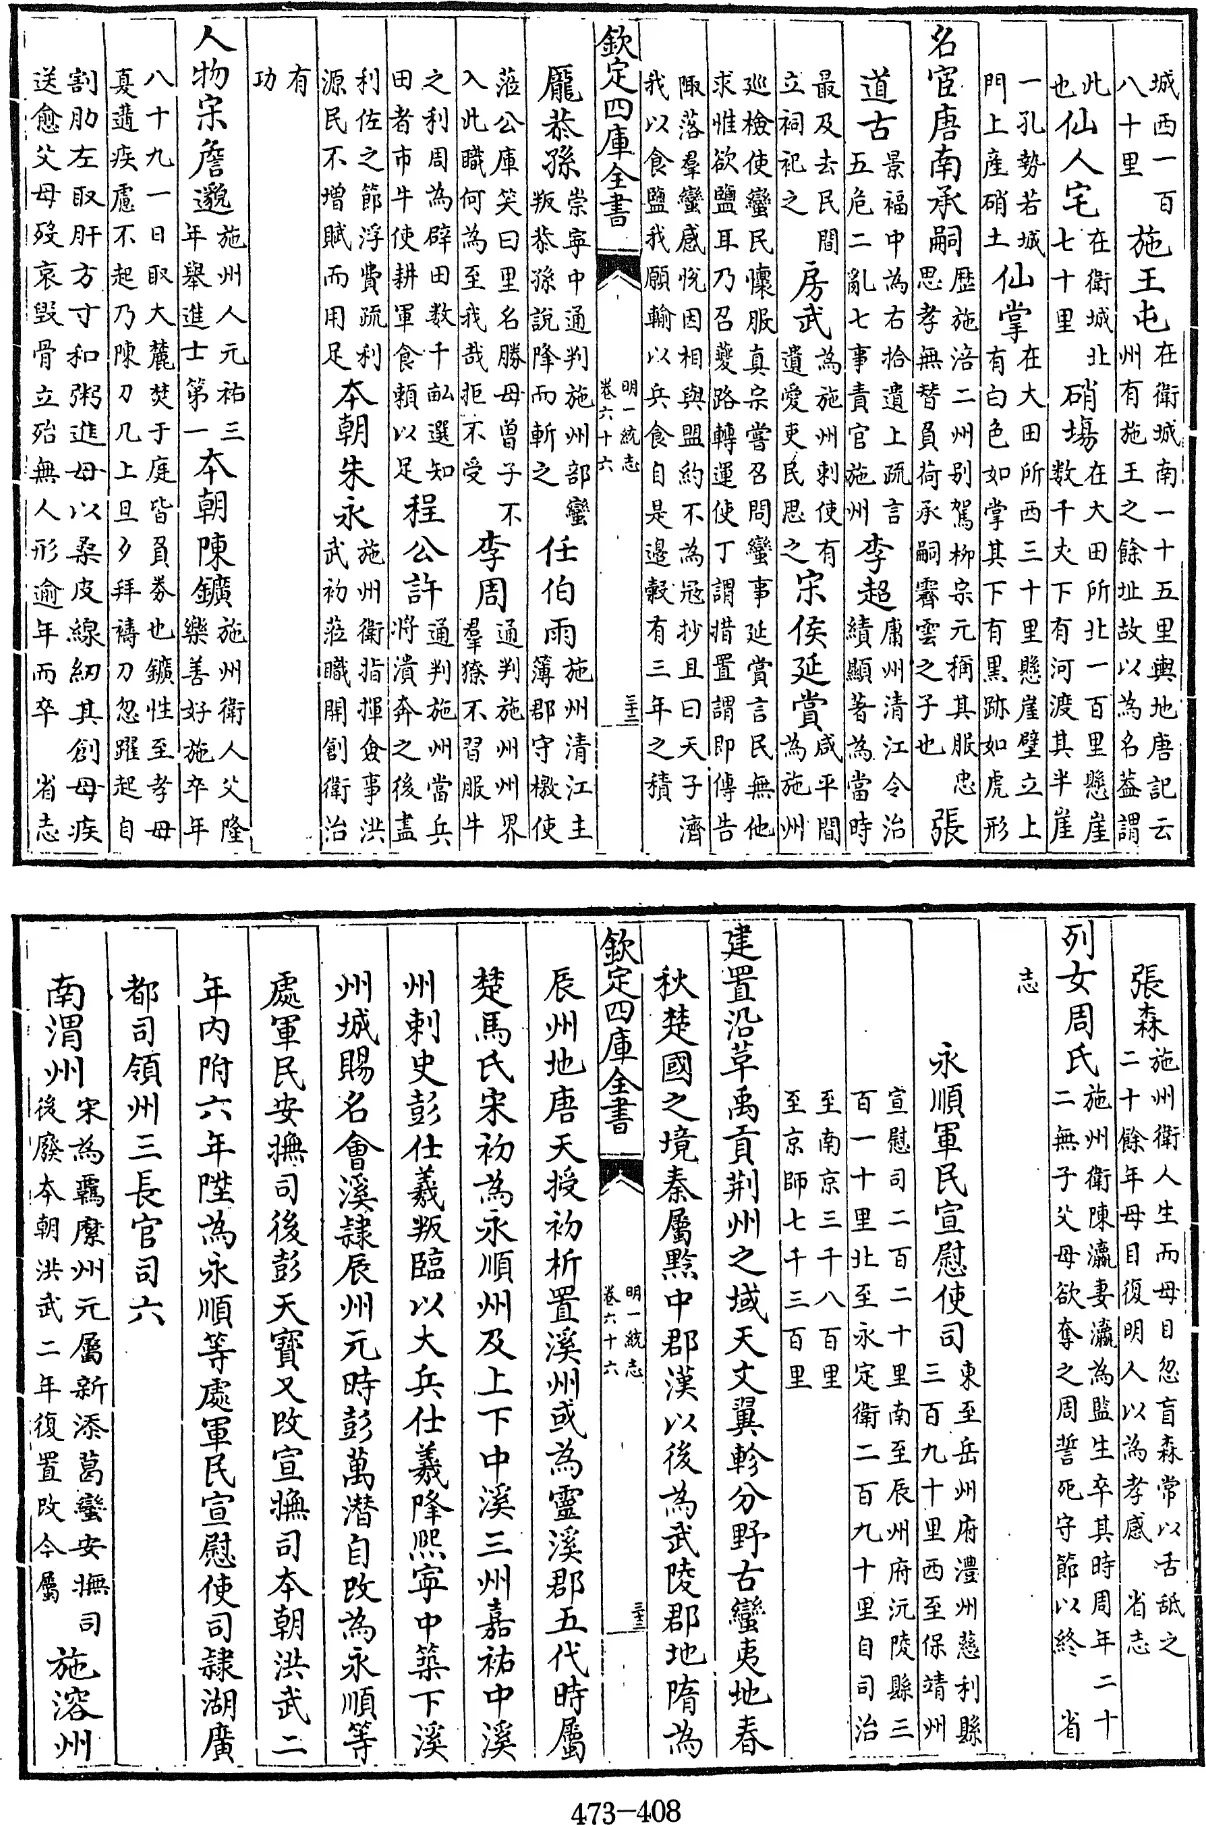 城西一百八十里施王屯在衛城南一十五里輿地唐記云州有施王之餘址故以為名葢謂
此也仙人宅在衛城北七十里硝場在大田所北一百里懸崖數千丈下有河渡其半崖
一孔勢若城門上産硝土仙掌在大田所西三十里懸崖壁立上有白色如掌其下有黒跡如虎形
名宦唐南承嗣歴施涪二州别駕柳宗元稱其服忠思孝無替負荷承嗣霽雲之子也張
道古景福中為右拾遺上疏言五危二亂七事責官施州李超庸州清江令治績顯著為當時
最及去民間立祠祀之房武為施州刺使有遺愛吏民思之宋侯延賞咸平間為施州
巡檢使蠻民懷服真宗嘗召問蠻事延賞言民無他求惟欲鹽耳乃召夔路轉運使丁謂措置謂即傳告
陬落羣蠻感悅因相與盟約不為冦抄且曰天子濟我以食鹽我願輸以兵食自是邊榖有三年之積
欽定四庫全書 明一統志卷六十六 三十三
龎恭孫崇寧中通判施州部蠻叛恭孫說降而斬之任伯雨施州清江主簿郡守檄使
蒞公庫笑曰里名勝母曾子不入此職何為至我哉拒不受李周通判施州州界羣獠不習服牛
之利周為辟田数千畝選知田者市牛使耕軍食頼以足程公許通判施州當兵將潰奔之後盡
利佐之節浮費疏利源民不增賦而用足本朝朱永施州衛指揮僉事洪武初蒞職開創衛治
有功
人物宋詹邈施州人元祐三年舉進士第一本朝陳鑛施州衛人父隆樂善好施卒年
八十九一日取大麓焚于庭皆負劵也鑛性至孝母真遘疾慮不起乃陳刀几上旦夕拜禱刀忽躍起自
割肋左取肝方寸和粥進母以桑皮線紉其創母疾送愈父母殁哀毁骨立殆無人形逾年而卒 省志
張森施州衛人生而母目忽盲森常以舌舐之二十餘年母目復明人以為孝感 省志
列女周氏施州衛陳瀛妻瀛為監生卒其時周年二十二無子父母欲奪之周誓死守節以終 省
志
永順軍民宣慰使司東至岳州府澧州慈利縣三百九十里西至保靖州
宣慰司二百二十里南至辰州府沅陵縣三百一十里北至永定衛二百九十里自司治
至南京三千八百里至京師七千三百里
建置沿革禹貢荆州之域天文翼軫分野古蠻夷地春
秋楚國之境秦屬黔中郡漢以後為武陵郡地隋為
欽定四庫全書 明一統志卷六十六 三十三
辰州地唐天授初析置溪州或為靈溪郡五代時屬
楚馬氏宋初為永順州及上下中溪三州嘉祐中溪
州刺史彭仕羲叛臨以大兵仕羲降熙寧中築下溪
州城賜名會溪隸辰州元時彭萬潛自改為永順等
處軍民安撫司後彭天寳又改宣撫司本朝洪武二
年内附六年陞為永順等處軍民宣慰使司隸湖廣
都司領州三長官司六
南渭州宋為羈縻州元屬新添葛蠻安撫司後廢本朝洪武二年復置改今屬施溶州
473-408